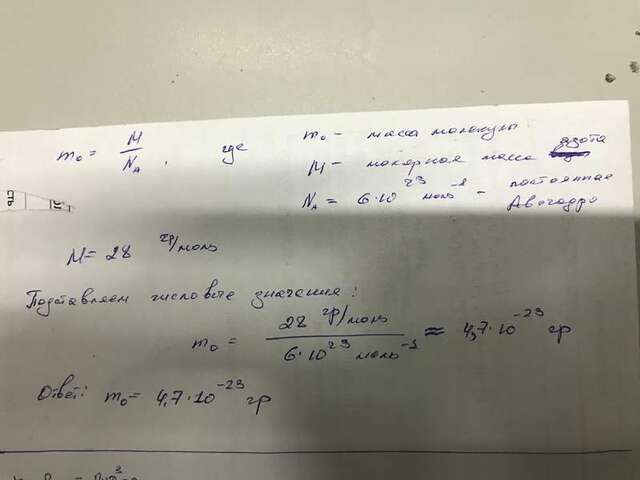 m₀ = M/N_A, где
m₀ - масса молекулы
M - молярная масса азота
N_A = 6·10²³ моль⁻¹ - постоянная Авогадро
M = 28 гр/моль
Подставляем числовые значения:
m₀ = 28 гр/моль / 6·10²³ моль⁻¹ ≈ 4,7·10⁻²³ гр
Ответ: m₀ = 4,7·10⁻²³ гр